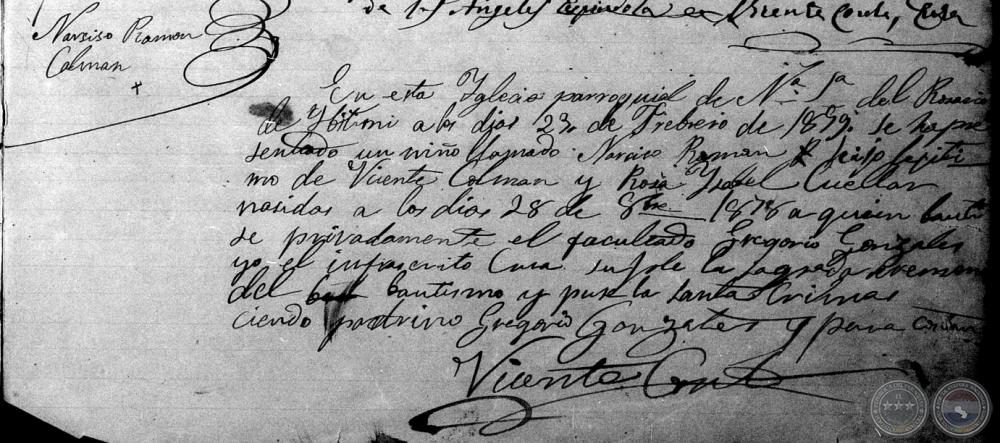 de Angeles Espindola en Vicente Conte, Cura
Narsiso Ramon
Colman
En esta Yglecia parroquial de Na. Sa. del Rosario
de Ybitimi a los dias 23. de Febrero de 1879. se ha pre
sentado un niño llamado Narsiso Ramon hijo lejiti
mo de Vicente Colman y Rosa Ysabel Cuellar
nasidas a los dias 28 de 8bre. 1878 a quien bauti
se privadamente el facultado Gregorio Gonzales
yo el infrascrito Cura suple la sagrada seremon
del bautismo y puse la santas Crismas
ciendo padrino Gregorio Gonzales y para
Vicente Conte